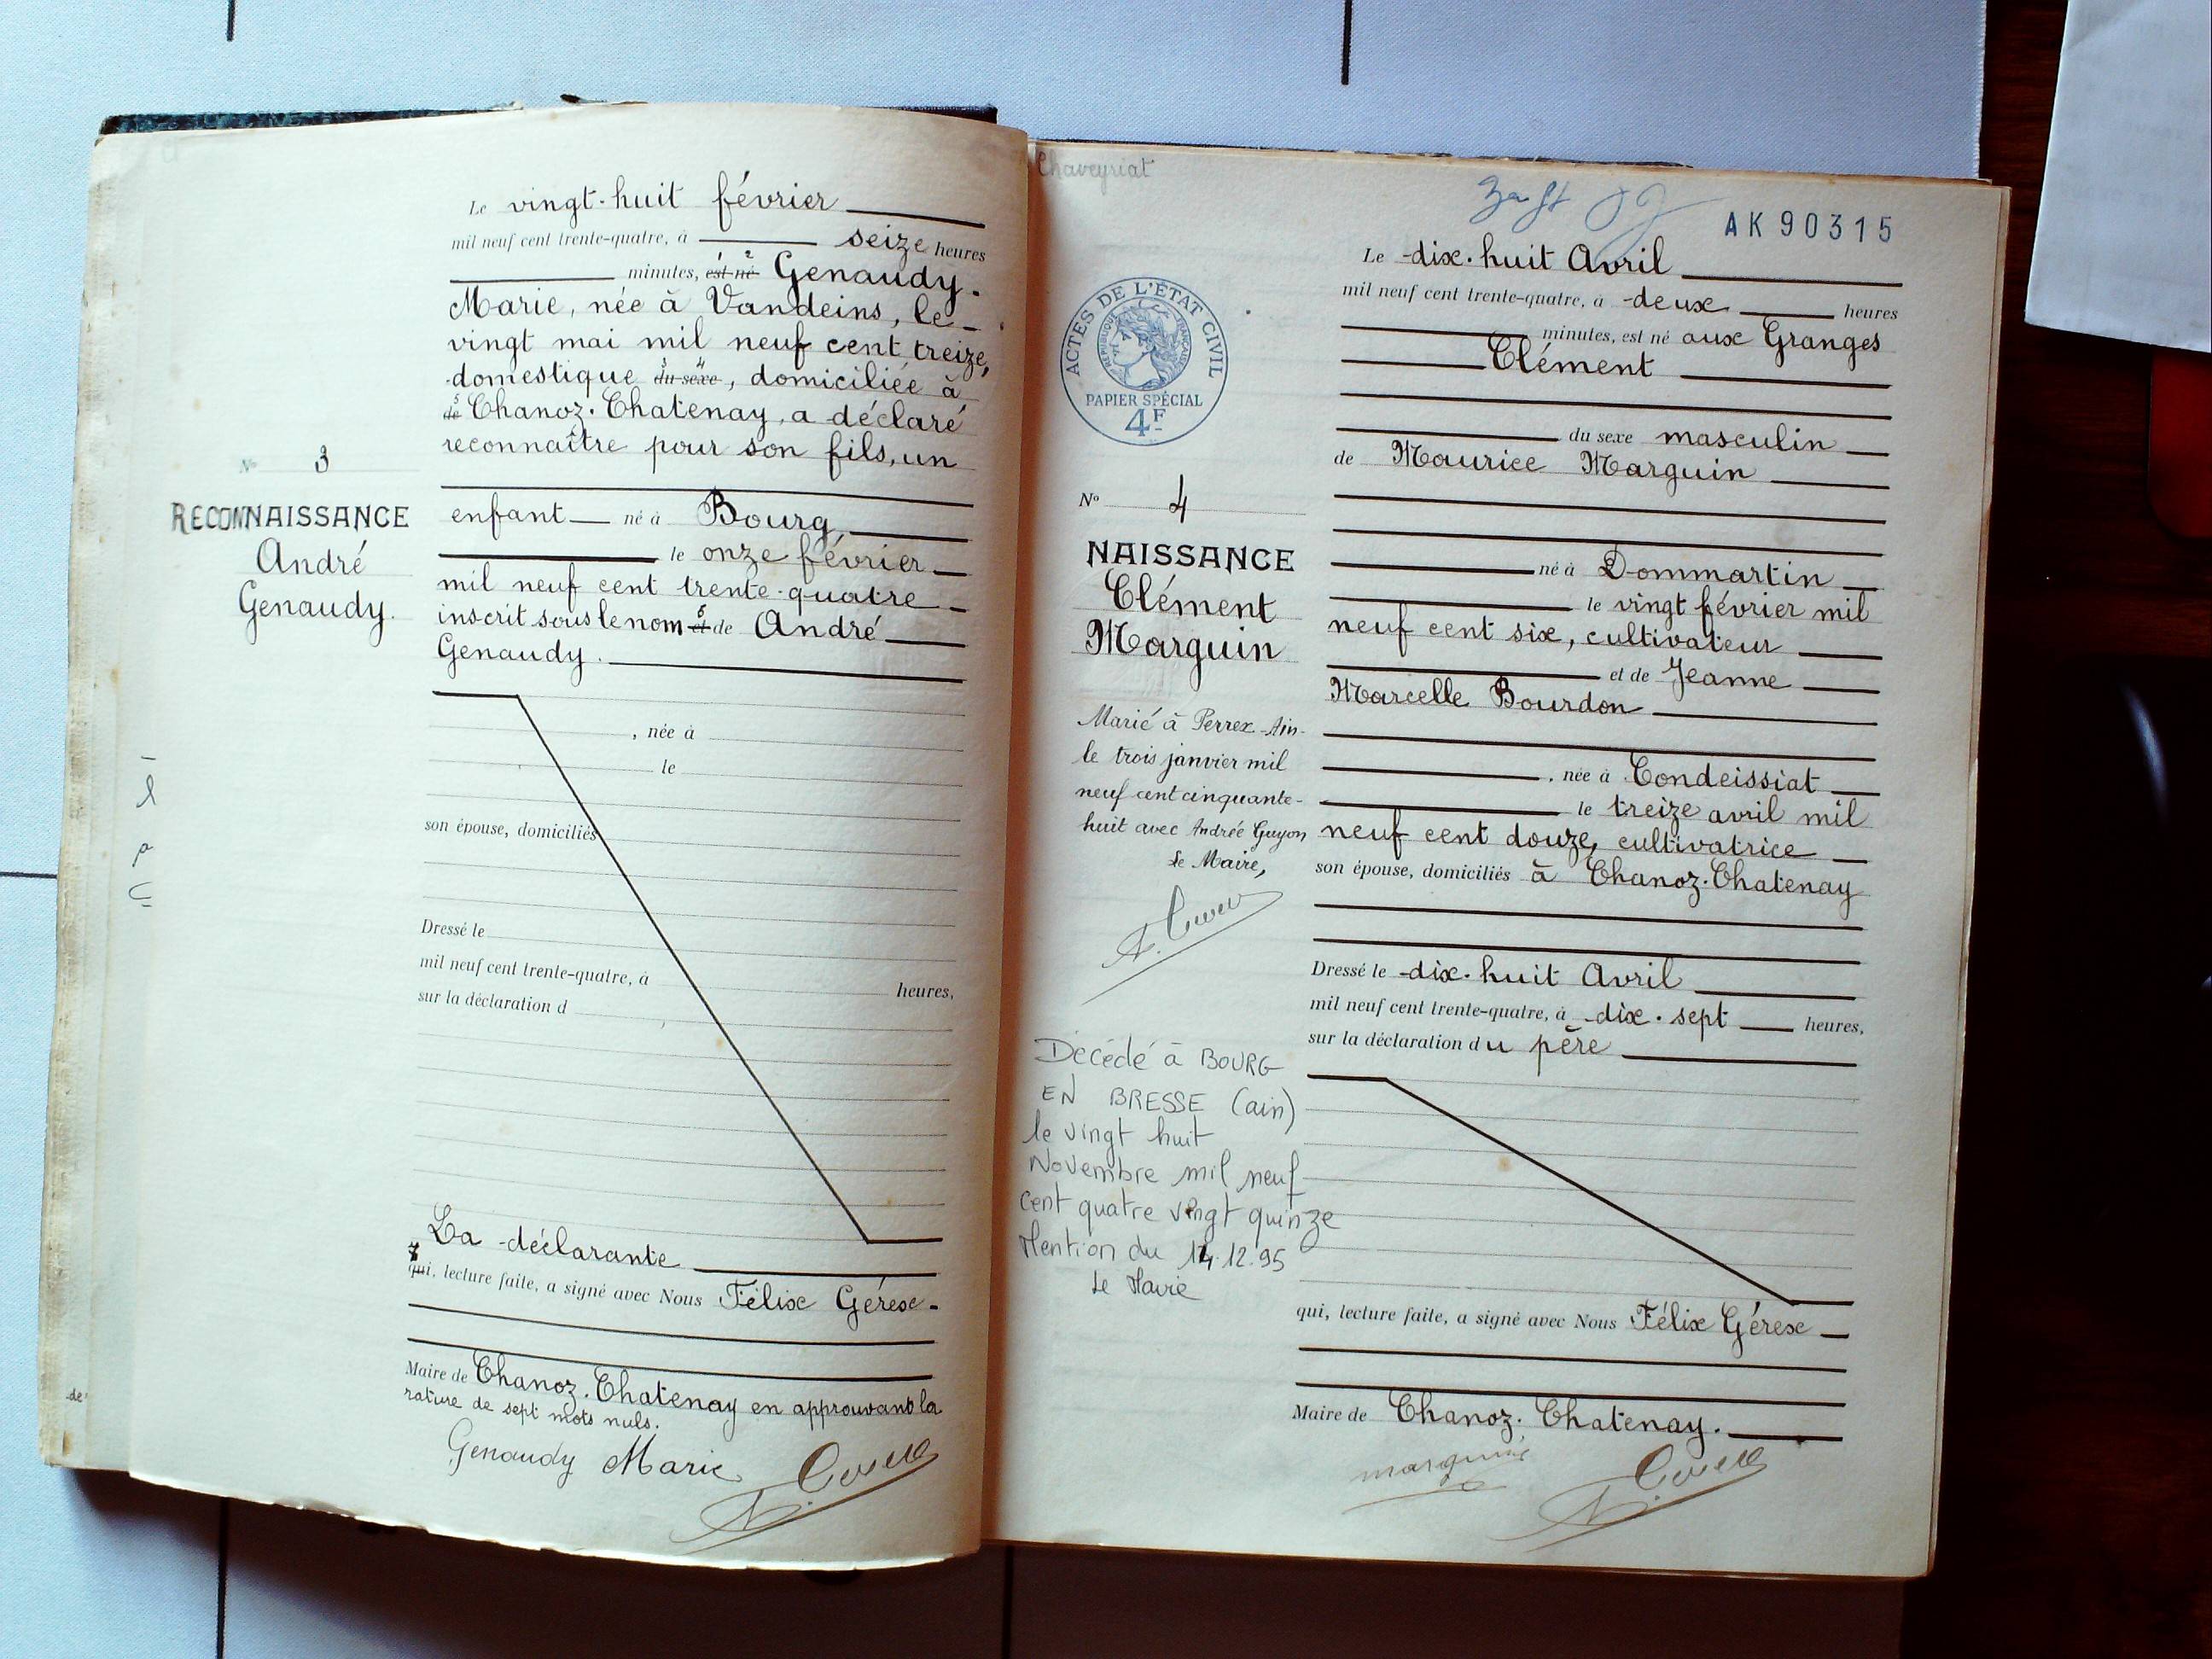 Le vingt-huit février
mil neuf cent trente-quatre, à seize heures
minutes, est né Genaudy
Marie, née à Vandeins, le
vingt mai mil neuf cent treize,
domestique du sexe, domiciliée à
de Chanoz-Chatenay, a déclaré
reconnaître pour son fils, un
No 3
RECONNAISSANCE
André
Genaudy.
enfant né à Bourg
le onze février
mil neuf cent trente-quatre
inscrit sous le nom et de André
Genaudy.
, née à
le
son épouse, domiciliés
Dressé le
mil neuf cent trente-quatre, à heures,
sur la déclaration d
La déclarante
qui, lecture faite, a signé avec Nous Félix Gérex
Maire de Chanoz-Chatenay en approuvant la
rature de sept mots nuls.
Genaudy Marie
Chaveyriat
AK 90315
ACTES DE L'ÉTAT CIVIL
RÉPUBLIQUE FRANÇAISE
PAPIER SPÉCIAL
4F
Le dix-huit Avril
mil neuf cent trente-quatre, à deux heures
minutes, est né aux Granges
Clément
du sexe masculin
de Maurice Marguin
né à Dommartin
le vingt février mil
neuf cent six, cultivateur
et de Jeanne
Marcelle Bourdon
, née à Condeissiat
le treize avril mil
neuf cent douze, cultivatrice
son épouse, domiciliés à Chanoz-Chatenay
Dressé le dix-huit Avril
mil neuf cent trente-quatre, à dix-sept heures,
sur la déclaration du père
qui, lecture faite, a signé avec Nous Félix Gérex
Maire de Chanoz-Chatenay.
marguin
No 4
NAISSANCE
Clément
Marguin
Marié à Perrex -Ain-
le trois janvier mil
neuf cent cinquante-
huit avec Andrée Guyon
Le Maire,
Décédé à BOURG
EN BRESSE (ain)
le vingt huit
Novembre mil neuf
cent quatre vingt quinze
Mention du 14.12.95
Le Maire